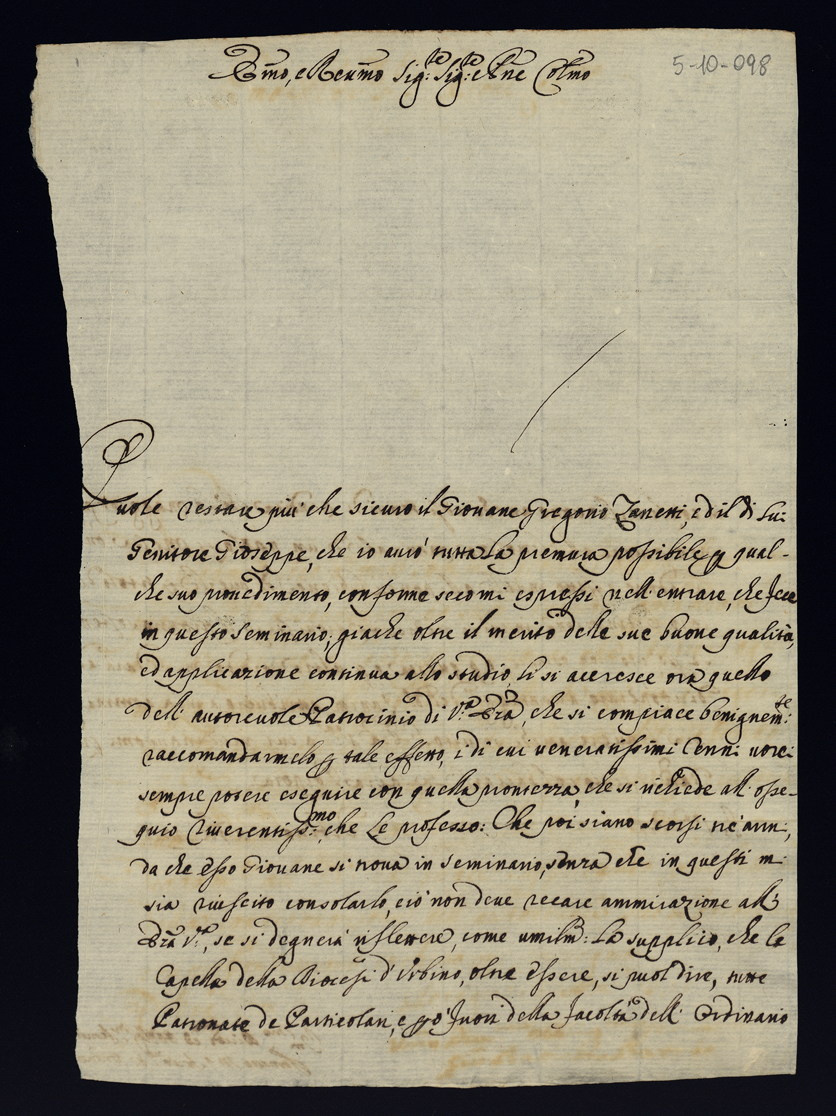 5-10-098
Emo, e Reumo Sig:re Sig:re e Pne Colmo
Puole restare piu' che sicuro il Giouane Gregorio Zanetti, ed il di lui
Genitore Gioseppe, che io aurò tutta la premura possibile p qual-
che suo prouedimento, conforme seco mi espressi nell' entrare, che fece
in questo Seminario; giache oltre il merito delle sue buone qualità,
ed applicazione continua allo studio, li si accresce ora quello
dell' autoreuole Patrocinio di V.ra Em̃a, che si compiace benignem:te
raccomandarmelo p tale effetto, i di cui veneratissimi cenni vorei
sempre potere eseguire con quella prontezza che si richiede all' osse-
quio riuerentiss:mo che Le professo: Che poi siano scorsi trè anni,
da che esso Giouane si troua in Seminario, senza che in questi mi
sia riuscito consolarlo, ciò non deue recare ammirazione all'
Em̃a V.ra, se si degnerà riflettere, come umilm: La supplico, che le
Capelle della Diocesi d'Urbino, oltre essere, si puol dire, tutte
Patronate de Particolari, e p ò fuori della facoltà dell' Ordinario